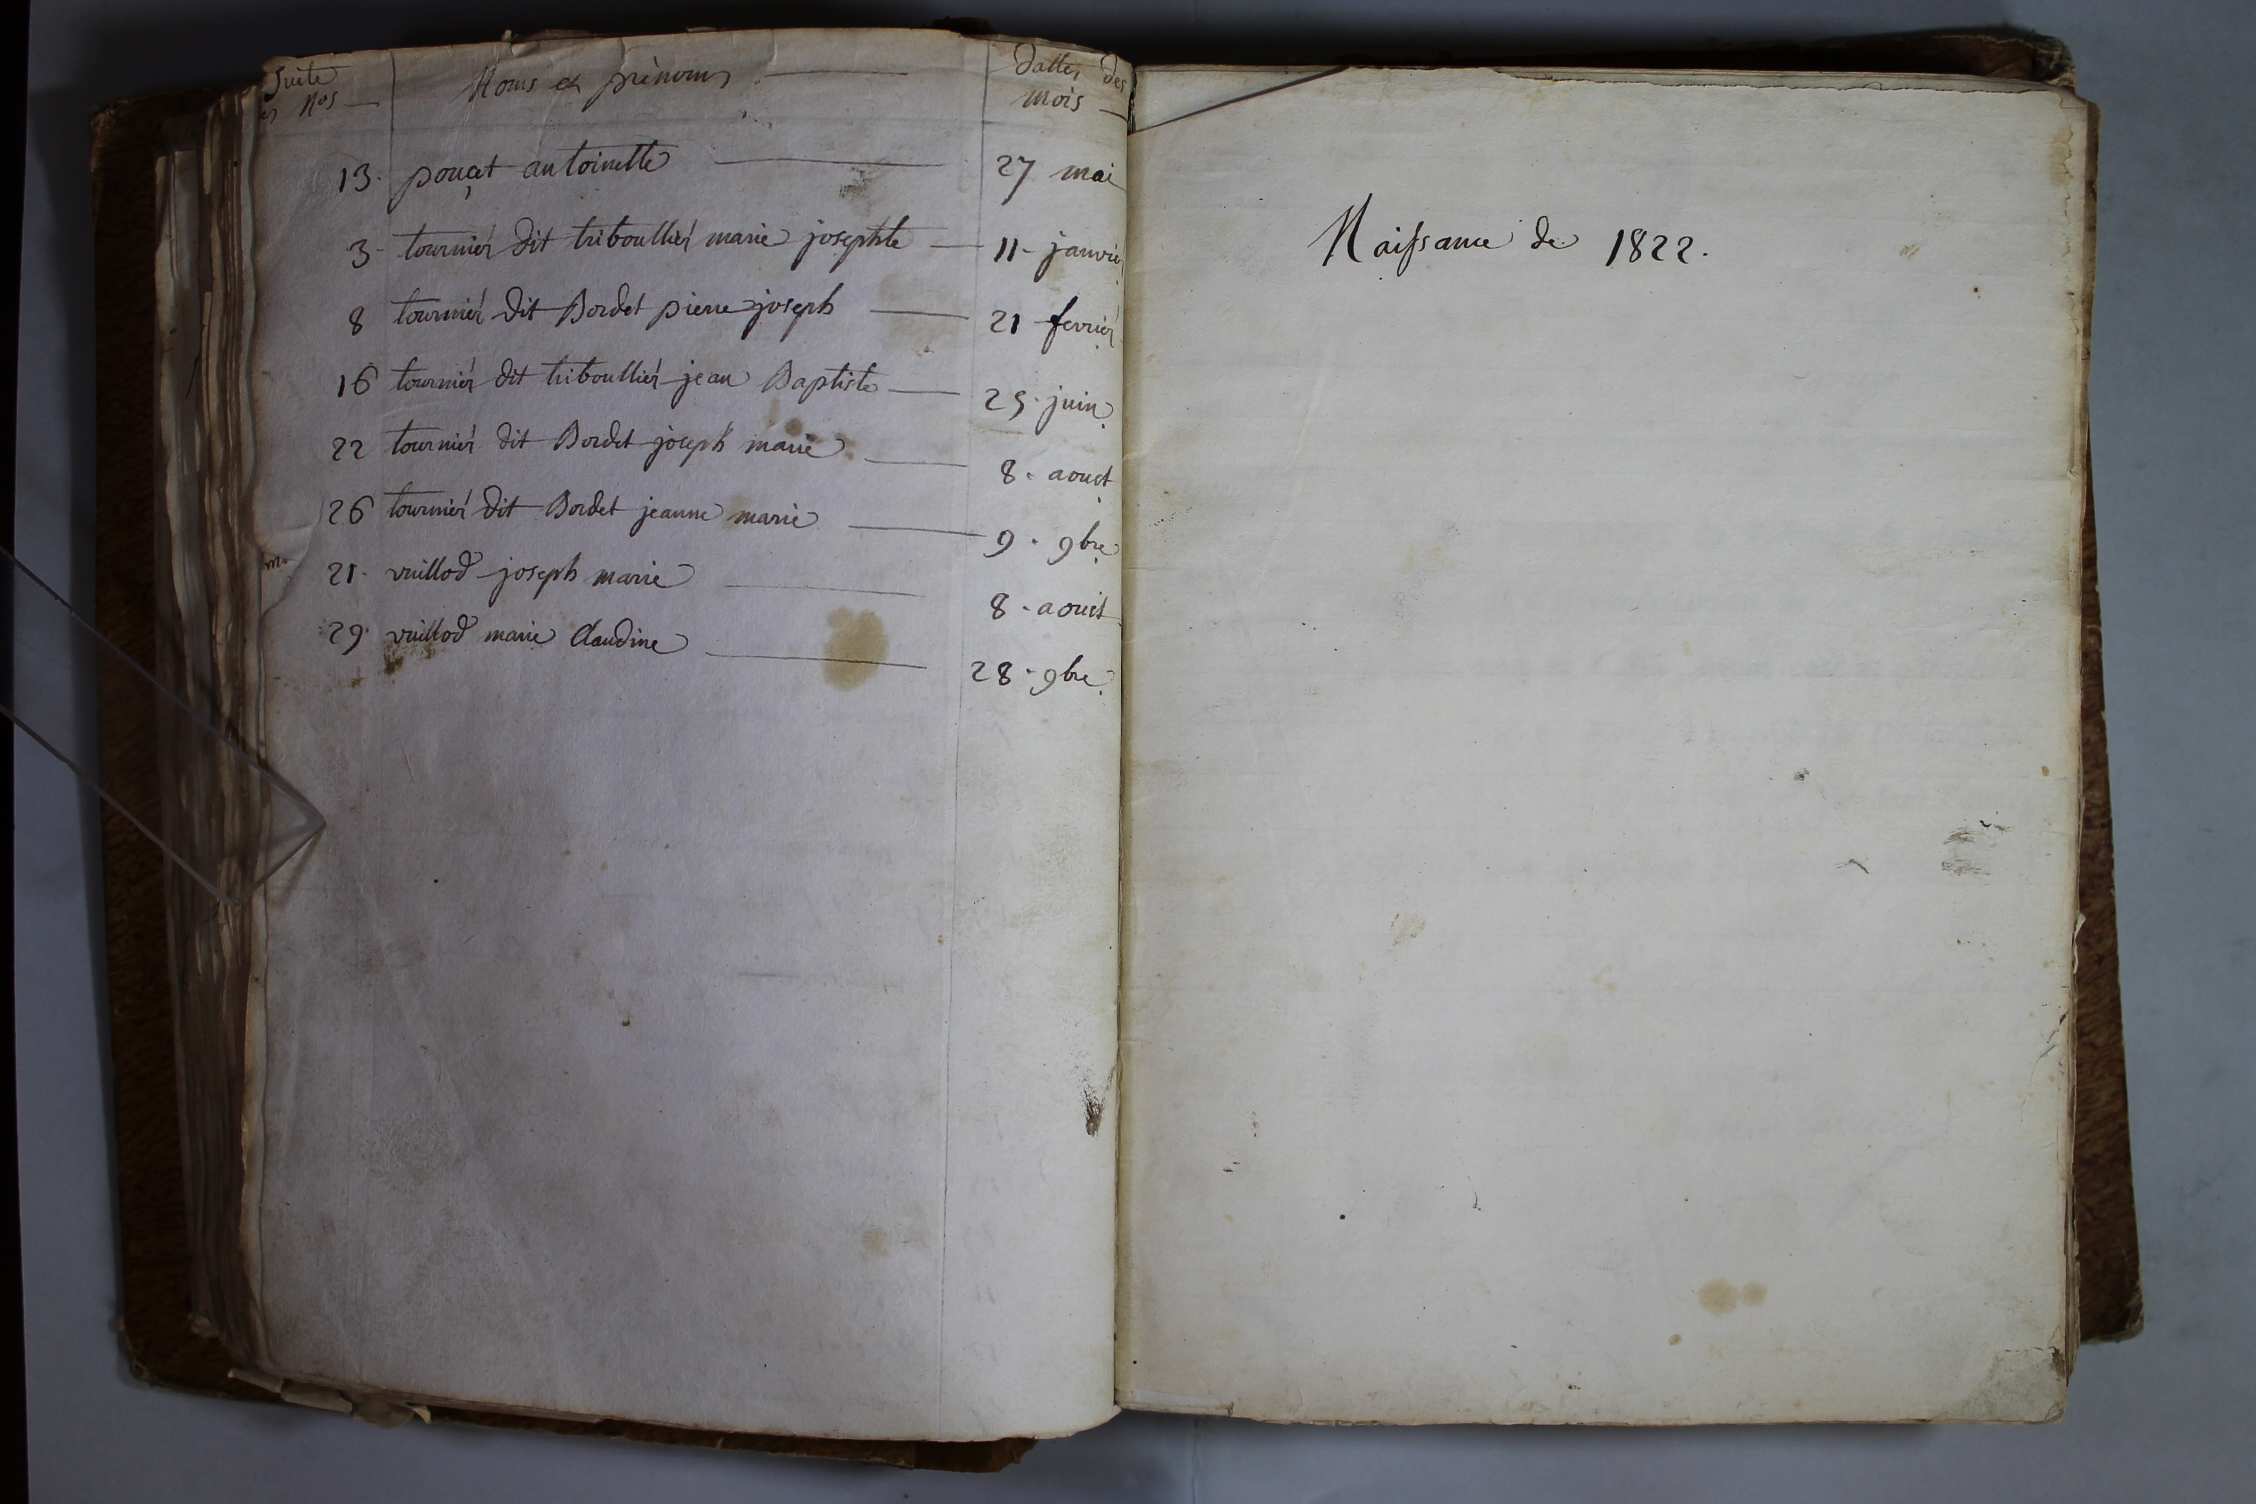 Suite Noms et prénoms dattes des
es Nos mois
13. pouçt antoinette 27 mai
3. tournier dit triboullier marie josephte 11. janvier
8 tournier dit Bordet pierre joseph 21 fevrier
16 tournier dit triboullier jean Baptiste 25. juin
22 tournier dit Bordet joseph marie 8. aoust
26 tournier dit Bordet jeanne marie 9. 9bre
m. 21. vuillod joseph marie 8. aoust
29. vuillod marie Claudine 28. 9bre
Naissance de 1822.